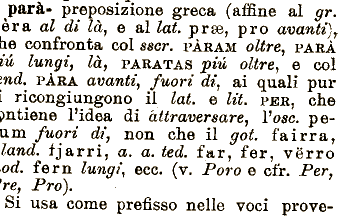 parà- preposizione greca (affine al gr.
èra al di là, e al lat. præ, pro avanti),
he confronta col sscr. PÀRAM oltre, PARÀ
iú lungi, là, PARATAS piú oltre, e col
end. PÀRA avanti, fuori di, ai quali pur
i ricongiungono il lat. e lit. PER, che
ontiene l'idea di attraversare, l'osc. pe-
um fuori di, non che il got. fairra,
land. fjarri, a. a. ted. far, fer, vërro
od. fern lungi, ecc. (v. Poro e cfr. Per,
re, Pro).
Si usa come prefisso nelle voci prove-